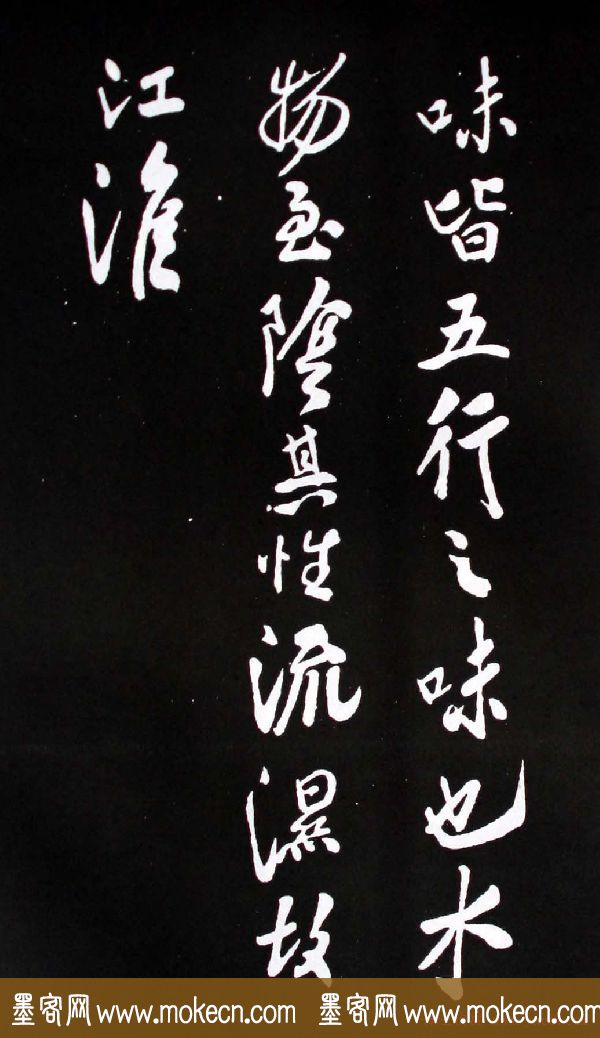 味皆五行之味也水
物至陰其性流濕故
江淮
墨客网 www.mokecn.com 墨客网 www.mokecn.com